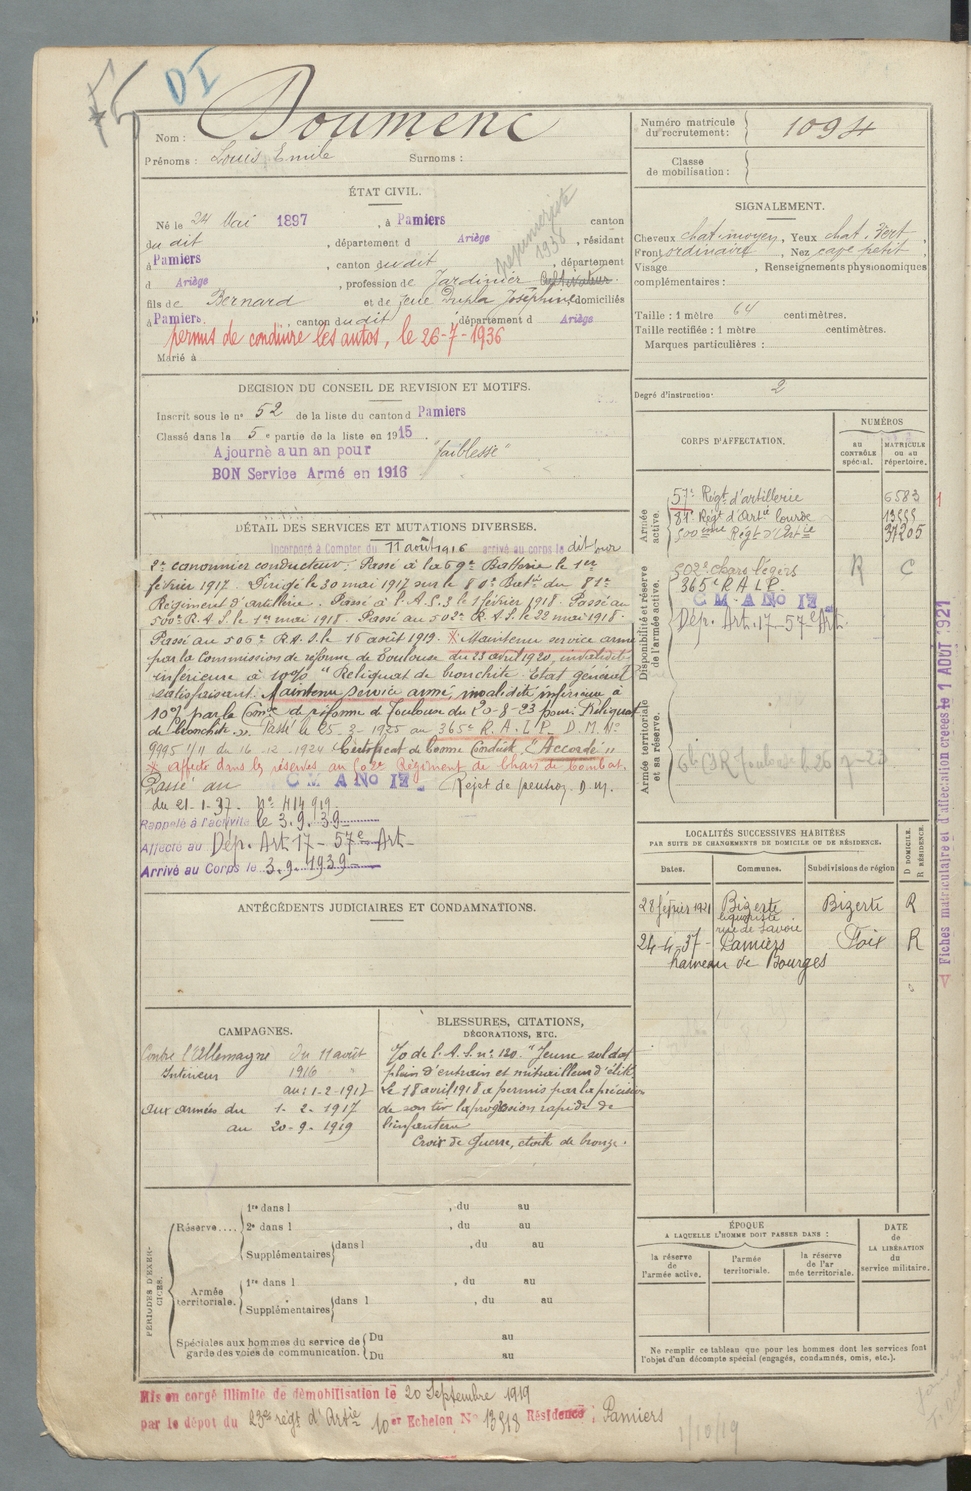 DI
Nom : Doumenc
Prénoms : Louis Emile Surnoms :
Numéro matricule du recrutement : 1094
Classe de mobilisation :
ÉTAT CIVIL.
Né le 24 Mai 1897, à Pamiers canton
du dit, département d Ariège, résidant
à Pamiers, canton du dit, département
d Ariège, profession de Jardinier Cultivateur
pépinieriste 1938
fils de Bernard et de feue Dupla Joséphine domiciliés
à Pamiers, canton du dit, département d Ariège
permis de conduire les autos, le 26-7-1936
Marié à
SIGNALEMENT.
Cheveux chat. moyen, Yeux chat. Vert,
Front ordinaire, Nez cave petit,
Visage, Renseignements physionomiques
complémentaires :
Taille : 1 mètre 64 centimètres.
Taille rectifiée : 1 mètre centimètres.
Marques particulières :
Degré d'instruction : 2
DECISION DU CONSEIL DE REVISION ET MOTIFS.
Inscrit sous le no 52 de la liste du canton d Pamiers
Classé dans la 5e partie de la liste en 1915.
Ajourné a un an pour "faiblesse"
BON Service Armé en 1916
DÉTAIL DES SERVICES ET MUTATIONS DIVERSES.
Incorporé à Compter du 11 août 1916 arrivé au corps le dit jour
2e canonnier conducteur. Passé à la 69e Batterie le 1er
février 1917. Dirigé le 30 mai 1917 sur le 80e Batie du 81e
Régiment d'artillerie. Passé à l'A.S.3 le 1 février 1918. Passé au
500e R.A.S. le 1er mai 1918. Passé au 502e R.A.S. le 22 mai 1918.
Passé au 506e R.A.S. le 16 août 1919. X Maintenu service armé
par la Commission de réforme de Toulouse du 23 avril 1920, invalidité
inférieure à 10% "Reliquat de bronchite. Etat général
satisfaisant. Maintenu service armé, invalidité inférieure à
10% par la Comon de réforme de Toulouse du 20-8-23 pour: Reliquat
de bronchite ». Passé le 25-2-1925 au 365e R.A.L.P. D.M. No
9995 1/11 du 16-12-1924 Certificat de bonne Conduite "Accordé"
X affecté dans les réserves au 502e Régiment de Chars de Combat.
Passé au C M A No 17 Rejet de pension D.M.
du 21-1-37. No 414919.
Rappelé à l'activité le 3.9.39
Affecté au Dép. Art. 17 - 57e Art.
Arrivé au Corps le 3.9.1939
CORPS D'AFFECTATION.
NUMÉROS
AU CONTRÔLE spécial.
MATRICULE ou au répertoire.
Armée active.
57e Régt d'artillerie 6583
81e Régt d'Artie lourde 13555
500ème Régt d'Artie 37205
Disponibilité et réserve de l'armée active.
502e chars légers R C
365e R A L P.
C M A No 17
Dép. Art. 17 - 57e Art.
Armée territoriale et sa réserve.
Fiches matriculaire et d'affectation créées le 1 AOUT 1921
LOCALITÉS SUCCESSIVES HABITÉES
PAR SUITE DE CHANGEMENTS DE DOMICILE OU DE RÉSIDENCE.
D DOMICILE. R RÉSIDENCE.
Dates. Communes. Subdivisions de région
28 février 1921 Bizerte Bizerte R
rue de Savoie
24-4-37 - Pamiers Foix R
hameau de Bourges
ANTÉCÉDENTS JUDICIAIRES ET CONDAMNATIONS.
CAMPAGNES.
Contre l'Allemagne du 11 août
Intérieur 1916
au: 1-2-1917
aux armées du 1-2-1917
au 20-9-1919
BLESSURES, CITATIONS,
DÉCORATIONS, ETC.
O/o de l'A.S. no 120. "Jeune soldat
plein d'entrain et mitrailleur d'élite
Le 18 avril 1918 a permis par la précision
de son tir la progression rapide de
l'infanterie
Croix de Guerre, étoile de bronze.
PÉRIODES D'EXERCICES.
Réserve....
1re dans l , du au
2e dans l , du au
Supplémentaires dans l , du au
Armée territoriale.
1re dans l , du au
Supplémentaires dans l , du au
Spéciales aux hommes du service de garde des voies de communication.
Du au
Du au
ÉPOQUE
A LAQUELLE L'HOMME DOIT PASSER DANS :
la réserve de l'armée active.
l'armée territoriale.
la réserve de l'ar mée territoriale.
DATE de LA LIBÉRATION du service militaire.
Ne remplir ce tableau que pour les hommes dont les services font
l'objet d'un décompte spécial (engagés, condamnés, omis, etc.).
Mis en congé illimité de démobilisation le 20 Septembre 1919
par le dépot du 23e régt d'Artie 10er Echelon No 13518 Résidence : Pamiers
1/10/19